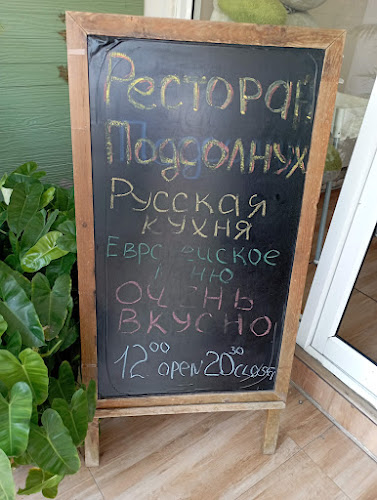 Ресторан
Подсолнух
Русская
кухня
Европейское
меню
Очень
вкусно
12⁰⁰ open 20³⁰ closed